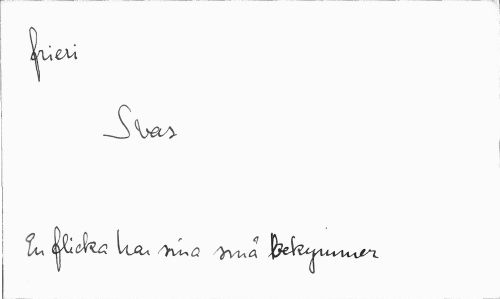 frieri
Svas
En flicka har sina små bekymmer